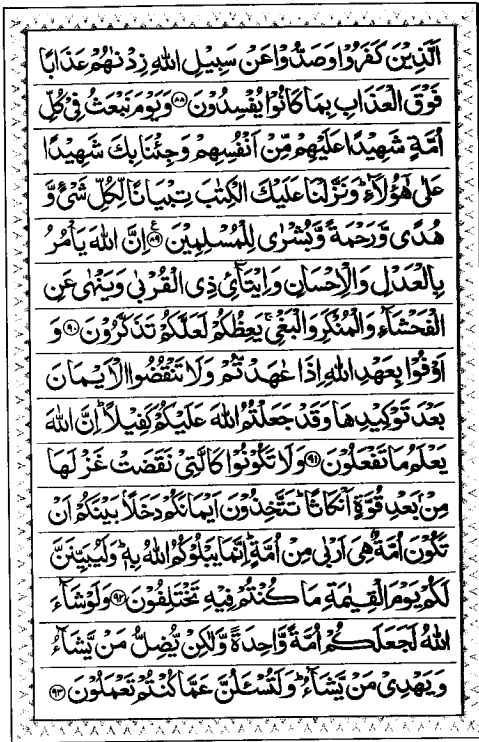 اَلَّذِيْنَ كَفَرُوْا وَصَدُّوْا عَنْ سَبِيْلِ اللّٰهِ زِدْنٰهُمْ عَذَابًا
فَوْقَ الْعَذَابِ بِمَا كَانُوْا يُفْسِدُوْنَ ﴿۸۸﴾ وَيَوْمَ نَبْعَثُ فِىْ كُلِّ
اُمَّةٍ شَهِيْدًا عَلَيْهِمْ مِّنْ اَنْفُسِهِمْ وَجِئْنَا بِكَ شَهِيْدًا
عَلٰى هٰٓؤُلَآءِؕ وَنَزَّلْنَا عَلَيْكَ الْكِتٰبَ تِبْيَانًا لِّكُلِّ شَىْءٍ وَّ
هُدًى وَّرَحْمَةً وَّبُشْرٰى لِلْمُسْلِمِيْنَ ﴿۸۹﴾ اِنَّ اللّٰهَ يَاْمُرُ
بِالْعَدْلِ وَالْاِحْسَانِ وَاِيْتَآئِ ذِى الْقُرْبٰى وَيَنْهٰى عَنِ
الْفَحْشَآءِ وَالْمُنْكَرِ وَالْبَغْىِۚ يَعِظُكُمْ لَعَلَّكُمْ تَذَكَّرُوْنَ ﴿۹۰﴾ وَ
اَوْفُوْا بِعَهْدِ اللّٰهِ اِذَا عٰهَدْتُّمْ وَلَا تَنْقُضُوا الْاَيْمَانَ
بَعْدَ تَوْكِيْدِهَا وَقَدْ جَعَلْتُمُ اللّٰهَ عَلَيْكُمْ كَفِيْلًاؕ اِنَّ اللّٰهَ
يَعْلَمُ مَا تَفْعَلُوْنَ ﴿۹۱﴾ وَلَا تَكُوْنُوْا كَالَّتِىْ نَقَضَتْ غَزْلَهَا
مِنْۢ بَعْدِ قُوَّةٍ اَنْكَاثًاؕ تَتَّخِذُوْنَ اَيْمَانَكُمْ دَخَلًاۢ بَيْنَكُمْ اَنْ
تَكُوْنَ اُمَّةٌ هِىَ اَرْبٰى مِنْ اُمَّةٍؕ اِنَّمَا يَبْلُوْكُمُ اللّٰهُ بِهٖؕ وَلَيُبَيِّنَنَّ
لَكُمْ يَوْمَ الْقِيٰمَةِ مَا كُنْتُمْ فِيْهِ تَخْتَلِفُوْنَ ﴿۹۲﴾ وَلَوْ شَآءَ
اللّٰهُ لَجَعَلَكُمْ اُمَّةً وَّاحِدَةً وَّلٰكِنْ يُّضِلُّ مَنْ يَّشَآءُ
وَيَهْدِىْ مَنْ يَّشَآءُؕ وَلَتُسْئَلُنَّ عَمَّا كُنْتُمْ تَعْمَلُوْنَ ﴿۹۳﴾